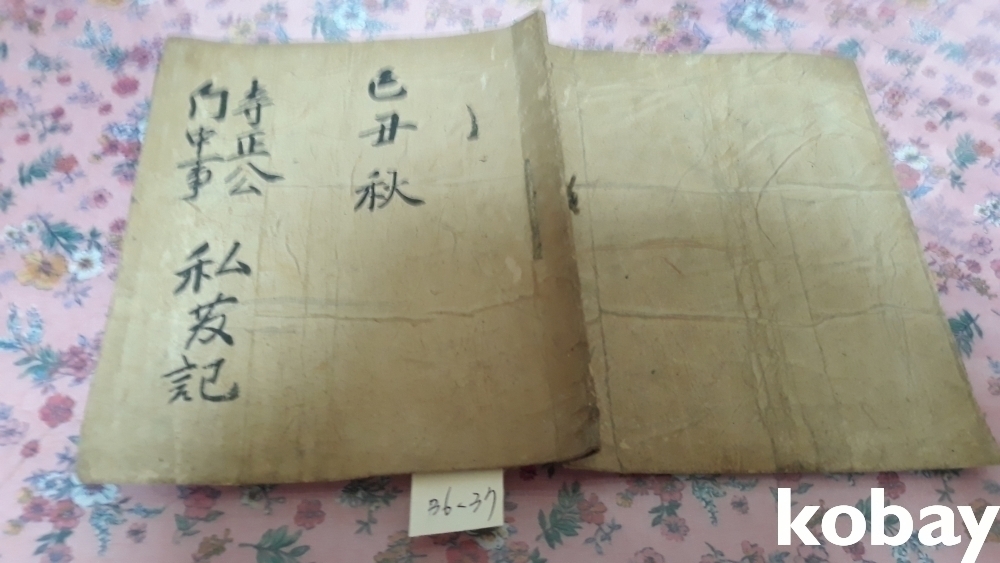 己丑秋
寺正公
門中事
私芨記
36-37
kobay